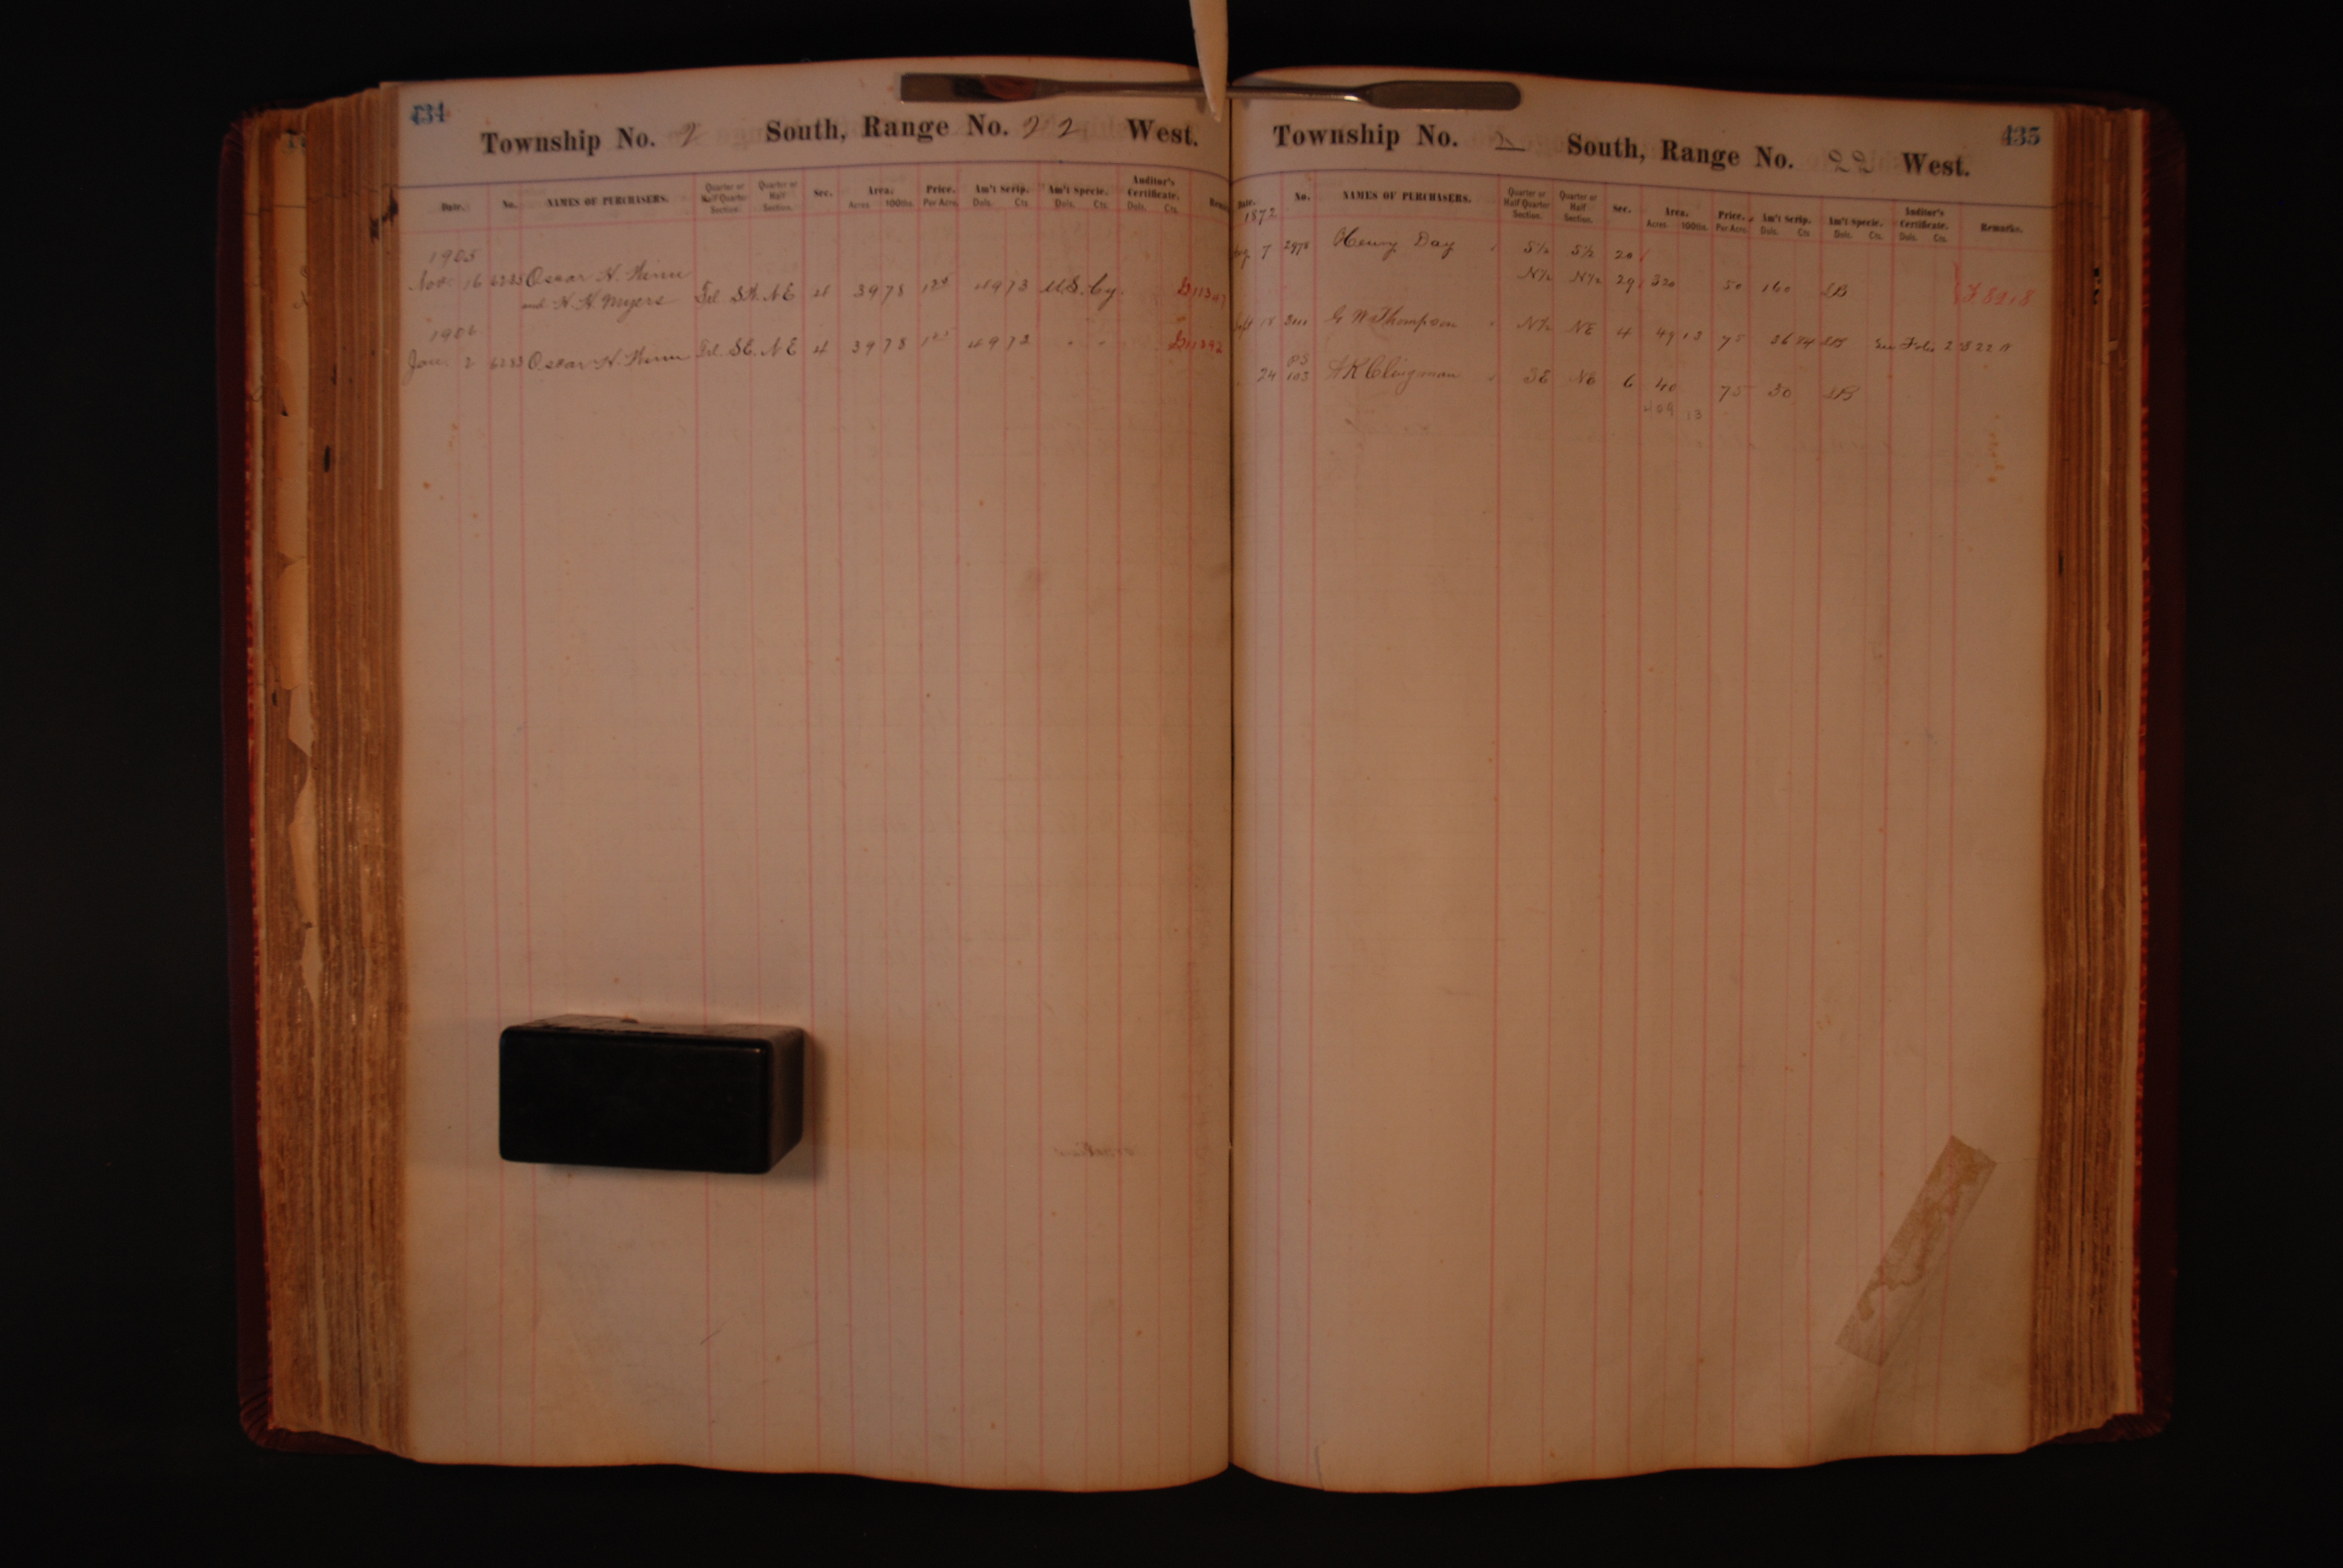 434
Township No. 2 South, Range No. 22 West.
Date. No. NAMES OF PURCHASERS. Quarter or Half Quarter Section. Quarter or Half Section. Sec. Area. Acres 100ths. Price. Per Acre. Am't Scrip. Dols. Cts. Am't Specie. Dols. Cts. Auditor's Certificate. Dols. Cts.
1905
Nov 16 Oscar H. Winn
and H. H. Myers Frl. NE 4 39 78 49 73 U.S. Cy.
1906
Jan. 2 6283 Oscar H. Winn Frl. SE. NE 4 39 78 49 73 " "
435
Township No. 2 South, Range No. 22 West.
Date. No. NAMES OF PURCHASERS. Quarter or Half Quarter Section. Quarter or Half Section. Sec. Area. Acres 100ths. Price. Per Acre. Am't Scrip. Dols. Cts. Am't Specie. Dols. Cts. Auditor's Certificate. Dols. Cts. Remarks.
1872
Aug 7 2978 Henry Day S½ S½ 20
N½ N½ 29 320 50 160 SB
Sept G W Thompson N½ NE 4 49 13 75 36 84 SB See Folio
PS
24 103 A K Clingman SE NE 6 40 75 30 SB
409 13